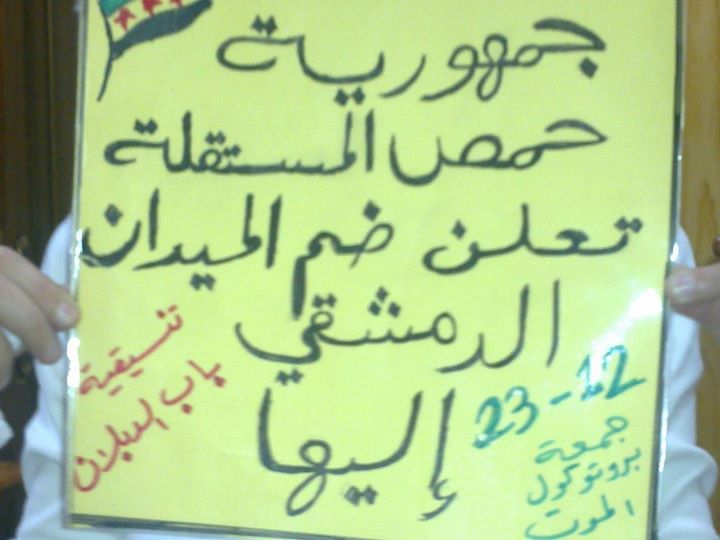 جمهورية
حمص المستقلة
تعلن ضم الميدان
الدمشقي
إليها
تنسيقية
باب السباع
23-12
جمعة
بروتوكول
الموت